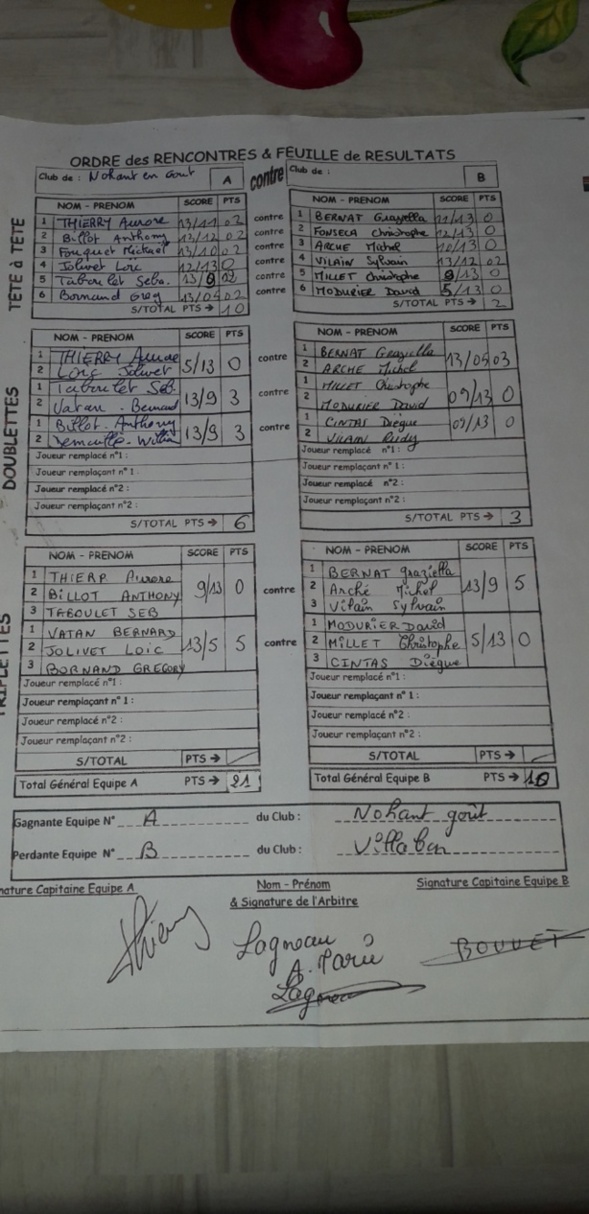 ORDRE des RENCONTRES & FEUILLE de RESULTATS
Club de : Nohant en Gout A contre Club de : B
TÊTE à TÊTE
NOM - PRENOM SCORE PTS NOM - PRENOM SCORE PTS
1 THIERRY Aurore 13/11 02 contre 1 BERNAT Grazyella 11/13 0
2 Billot Anthony 13/12 02 contre 2 FONSECA Christophe 12/13 0
3 Fouquet Mickael 13/10 02 contre 3 ARCHE Michel 10/13 0
4 Jolivet Loïc 12/13 0 contre 4 VILAIN Sylvain 13/12 02
5 Taboulet Seba. 13/9 02 contre 5 MILLET Christophe 9/13 0
6 Bornand Greg 13/05 02 contre 6 MODURIER David 5/13 0
S/TOTAL PTS → 10 S/TOTAL PTS → 2
DOUBLETTES
NOM - PRENOM SCORE PTS NOM - PRENOM SCORE PTS
1 THIERRY Aurore 5/13 0 contre 1 BERNAT Graziella 13/05 03
2 Loïc Jolivet 2 ARCHE Michel
1 Taboulet Seb 13/9 3 contre 1 MILLET Christophe 09/13 0
2 Vatan . Bernard 2 MODURIER David
1 Billot . Anthony 13/9 3 contre 1 CINTAS Diègue 09/13 0
2 2 VILAIN Rudy
Joueur remplacé n°1 : Joueur remplacé n°1 :
Joueur remplaçant n° 1 : Joueur remplaçant n° 1 :
Joueur remplacé n°2 : Joueur remplacé n°2 :
Joueur remplaçant n°2 : Joueur remplaçant n°2 :
S/TOTAL PTS → 6 S/TOTAL PTS → 3
TRIPLETTES
NOM - PRENOM SCORE PTS NOM - PRENOM SCORE PTS
1 THIERR Aurore 9/13 0 contre 1 BERNAT graziella 13/9 5
2 BILLOT ANTHONY 2 Arché Michel
3 TABOULET SEB 3 Vilain Sylvain
1 VATAN BERNARD 13/5 5 contre 1 MODURIER David 5/13 0
2 JOLIVET LOIC 2 MILLET Christophe
3 BORNAND GREGORY 3 CINTAS Diègue
Joueur remplacé n°1 : Joueur remplacé n°1 :
Joueur remplaçant n° 1 : Joueur remplaçant n° 1 :
Joueur remplacé n°2 : Joueur remplacé n°2 :
Joueur remplaçant n°2 : Joueur remplaçant n°2 :
S/TOTAL PTS → S/TOTAL PTS →
Total Général Equipe A PTS → 21 Total Général Equipe B PTS → 10
Gagnante Equipe N° A du Club : Nohant goût
Perdante Equipe N° B du Club :
nature Capitaine Equipe A Nom - Prénom Signature Capitaine Equipe B
& Signature de l'Arbitre
Thierry Lagneau BOUVET
A. Marie